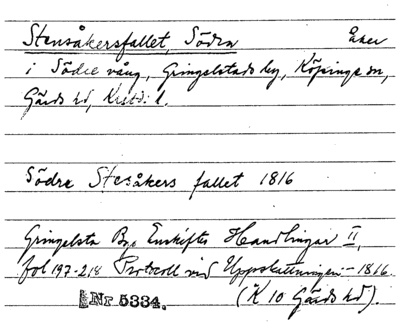 Stensåkersfallet, Södra Åker
i Södre vång, Gringelstads by, Köpinge sn,
Gärds hd, Krist: l.
Södra Stesåkers fallet 1816
Gringelsta Bys Enskiftes Handlingar II,
fol 197-218 Protocoll vid Uppskattningen - 1816.
Nr 5334. (K 10 Gärds hd).